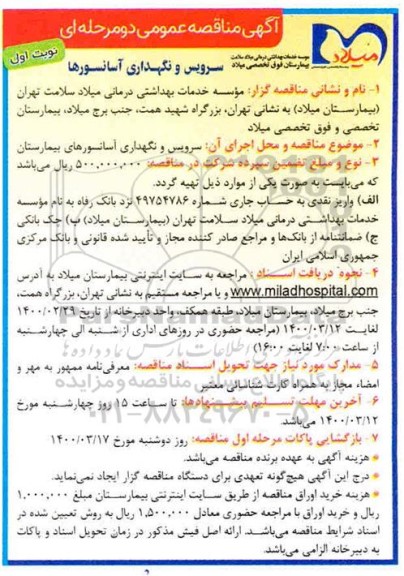 آگهی مناقصه عمومی دو مرحله ای
نوبت اول
میلاد
موسسه خدمات بهداشتی درمانی میلاد سلامت
بیمارستان فوق تخصصی میلاد
سرویس و نگهداری آسانسورها
۱- نام و نشانی مناقصه گزار: مؤسسه خدمات بهداشتی درمانی میلاد سلامت تهران
(بیمارستان میلاد) به نشانی تهران، بزرگراه شهید همت، جنب برج میلاد، بیمارستان
تخصصی و فوق تخصصی میلاد
۲- موضوع مناقصه و محل اجرای آن: سرویس و نگهداری آسانسورهای بیمارستان
۳- نوع و مبلغ تضمین سپرده شرکت در مناقصه: ۵۰۰,۰۰۰,۰۰۰ ریال می‌باشد
که می‌بایست به صورت یکی از موارد ذیل تهیه گردد.
الف) واریز نقدی به حساب جاری شماره ۴۹۷۵۴۷۸۶ نزد بانک رفاه به نام مؤسسه
خدمات بهداشتی درمانی میلاد سلامت تهران (بیمارستان میلاد) ب) چک بانکی
ج) ضمانتنامه از بانک‌ها و مراجع صادر کننده مجاز و تأیید شده قانونی و بانک مرکزی
جمهوری اسلامی ایران
۴- نحوه دریافت اسناد: مراجعه به سایت اینترنتی بیمارستان میلاد به آدرس
www.miladhospital.com و یا مراجعه مستقیم به نشانی تهران، بزرگراه همت،
جنب برج میلاد، بیمارستان میلاد، طبقه همکف، واحد دبیرخانه از تاریخ ۱۴۰۰/۰۲/۲۹
لغایت ۱۴۰۰/۰۳/۱۲ (مراجعه حضوری در روزهای اداری از شنبه الی چهارشنبه
از ساعت ۷:۰۰ لغایت ۱۶:۰۰)
۵- مدارک مورد نیاز جهت تحویل اسناد مناقصه: معرفی‌نامه ممهور به مهر و
امضاء مجاز به همراه کارت شناسایی معتبر
۶- آخرین مهلت تسلیم پیشنهادها: تا ساعت ۱۵ روز چهارشنبه مورخ
۱۴۰۰/۰۳/۱۲ می‌باشد.
۷- بازگشایی پاکات مرحله اول مناقصه: روز دوشنبه مورخ ۱۴۰۰/۰۳/۱۷
هزینه آگهی به عهده برنده مناقصه می‌باشد.
درج این آگهی هیچ‌گونه تعهدی برای دستگاه مناقصه گزار ایجاد نمی‌نماید.
هزینه خرید اوراق مناقصه از طریق سایت اینترنتی بیمارستان مبلغ ۱,۰۰۰,۰۰۰
ریال و خرید اوراق با مراجعه حضوری معادل ۱,۵۰۰,۰۰۰ ریال به روش تعیین شده در
اسناد شرایط مناقصه می‌باشد. ارائه اصل فیش مذکور در زمان تحویل اسناد و پاکات
به دبیرخانه الزامی می‌باشد.
۰۲۱-۸۸۳۴۹۶۷۰-۵